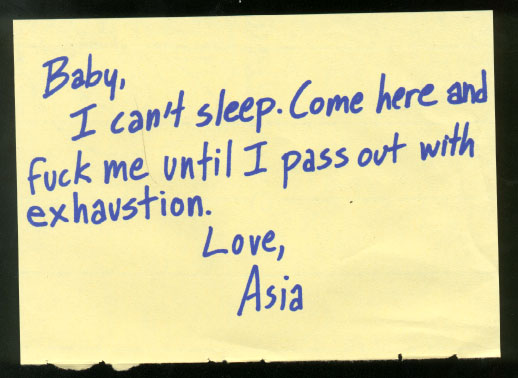 Baby,
I can't sleep. Come here and
fuck me until I pass out with
exhaustion.
Love,
Asia